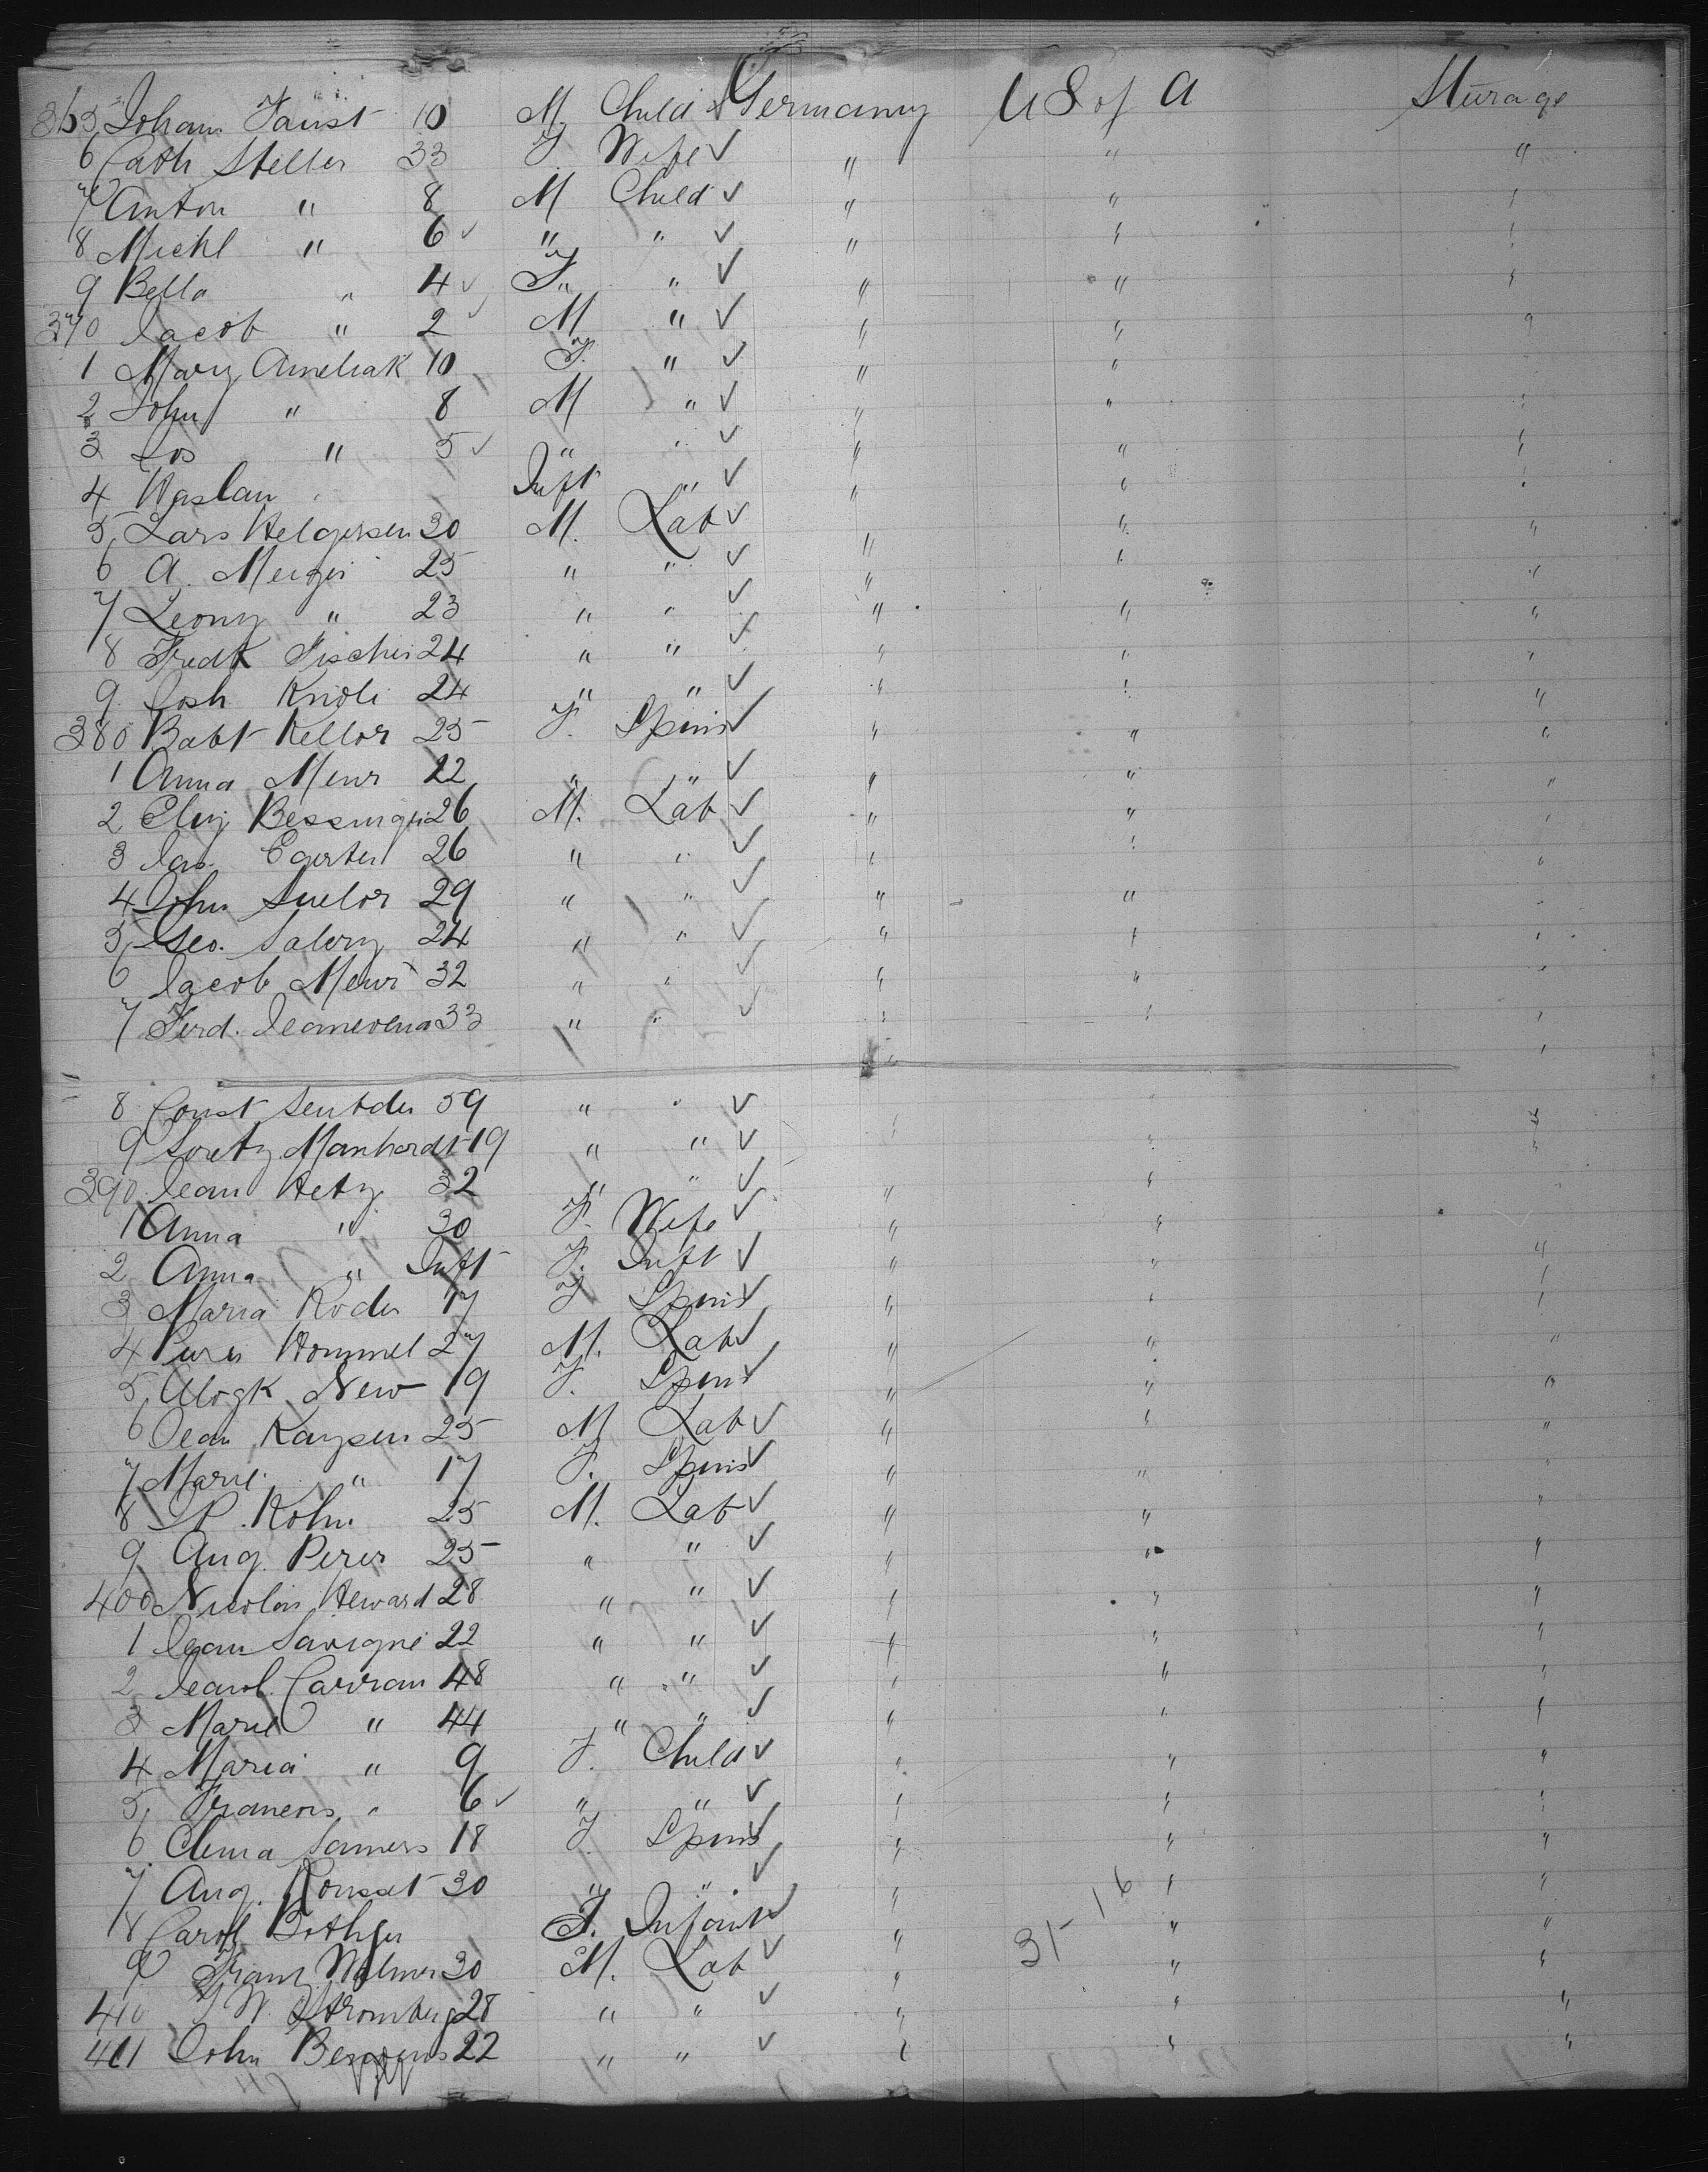 365 Johan Faust 10 M Child Germany U S of A Sturage
6 Cath Steller 33 F Wife " " "
7 Anton " 8 M Child " " "
8 Michl " 6 " " " " "
9 Bella " 4 F " " " "
370 Jacob " 2 M " " " "
1 Mary Ameliak 10 F. " " "
2 John " 8 M " " " "
3 Jos " 5 " " " " "
4 Waslau Inft " " " "
5 Lars Helgersen 30 M. Lab " " "
6 A. Merges 25 " " " " "
7 Leony " 23 " " " " "
8 Fredk Fischer 24 " " " " "
9 Josh 24 " " " " "
380 Babt Kellor 25 F. Spins " " "
1 Anna Meur 22 " " " " "
2 Bessinger 26 M. Lab " " "
3 Egerter 26 " " " " "
4 John Suelor 29 " " " " "
5 Geo. Salery 24 " " " " "
6 Jacob Meur 32 " " " " "
7 Ferd. 33 " " " " "
8 Const 59 " "
9 Manhardt 19 " " " " "
390 Jean Hetz 32 " " " "
1 Anna " 30 F. Wife " "
2 Anna " Inft F. Inft " " "
3 Maria Koder 17 F Spins " " "
4 Hommel 27 M. Lab " " "
5 New 19 F. Spins " " "
6 Jean Kaysen 25 M Lab " " "
7 Marie " 17 F. Spins " " "
8 P. Kohn 25 M. Lab " " "
9 Aug. Perer 25 " " " " "
400 Nicolas Heward 28 " " " " "
1 Jean Savigne 22 " " " " "
2 Carran 48 " " " " "
3 Marie " 44 " " " " "
4 Maria " 9 F. Child " " "
5 " 6 " " " " "
6 Somers 18 F. Spins " " "
7 Aug. Rousset 30 " " " " "
8 Carol Bothger F. Infant " 31-16 " "
9 Franz Wilmer 30 M. Lab " " "
410 W. Stromberg 28 " " " " "
411 John 22 " " " " "